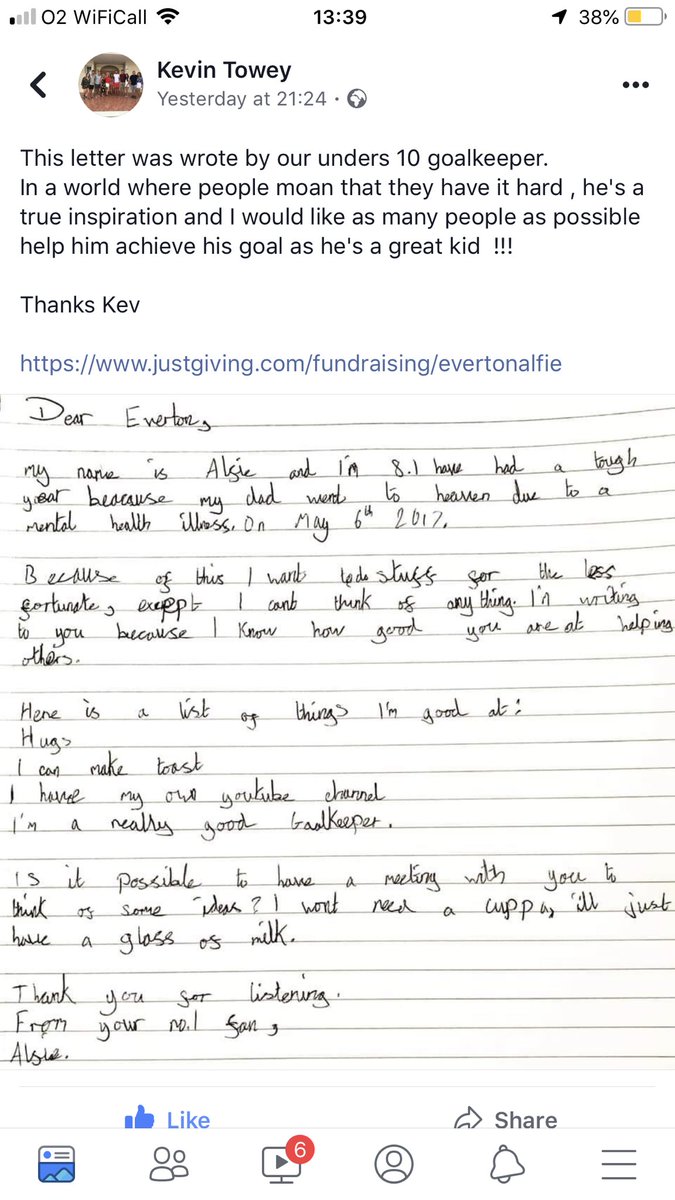 O2 WiFiCall 13:39 38%
Kevin Towey
Yesterday at 21:24 ·
This letter was wrote by our unders 10 goalkeeper.
In a world where people moan that they have it hard , he's a
true inspiration and I would like as many people as possible
help him achieve his goal as he's a great kid !!!
Thanks Kev
https://www.justgiving.com/fundraising/evertonalfie
Dear Everton,
my name is Alfie and I'm 8. I have had a tough
year beacause my dad went to heaven due to a
mental health illness. On May 6th 2017.
Because of this I want to do stuff for the less
fortunate, exeppt I cant think of any thing. I'm writing
to you because I know how good you are at helping
others.
Here is a list of things I'm good at:
Hugs
I can make toast
I have my own youtube channel
I'm a really good Goalkeeper.
Is it possible to have a meeting with you to
think of some ideas? I wont need a cuppa, ill just
have a glass of milk.
Thank you for listening.
From your no.1 fan,
Alfie.
Like Share
6